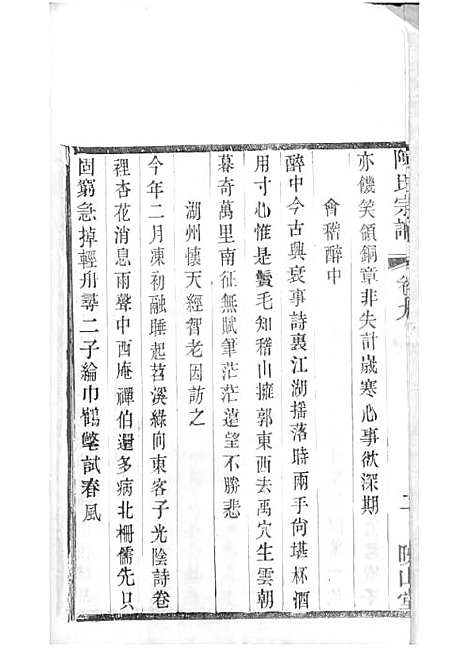 陳氏宗譜
卷九
二
映山堂
亦饑笑領銅章非失計歲寒心事欲深期
會稽醉中
醉中今古興衰事詩裏江湖搖落時兩手尙堪杯酒
用寸心惟是鬢毛知稽山擁郭東西去禹穴生雲朝
暮奇萬里南征無賦筆茫茫遠望不勝悲
湖州懷天經智老因訪之
今年二月凍初融睡起苕溪綠向東客子光陰詩卷
裡杏花消息雨聲中西庵禪伯還多病北柵儒先只
固窮急掉輕舟尋二子綸巾鶴氅試春風